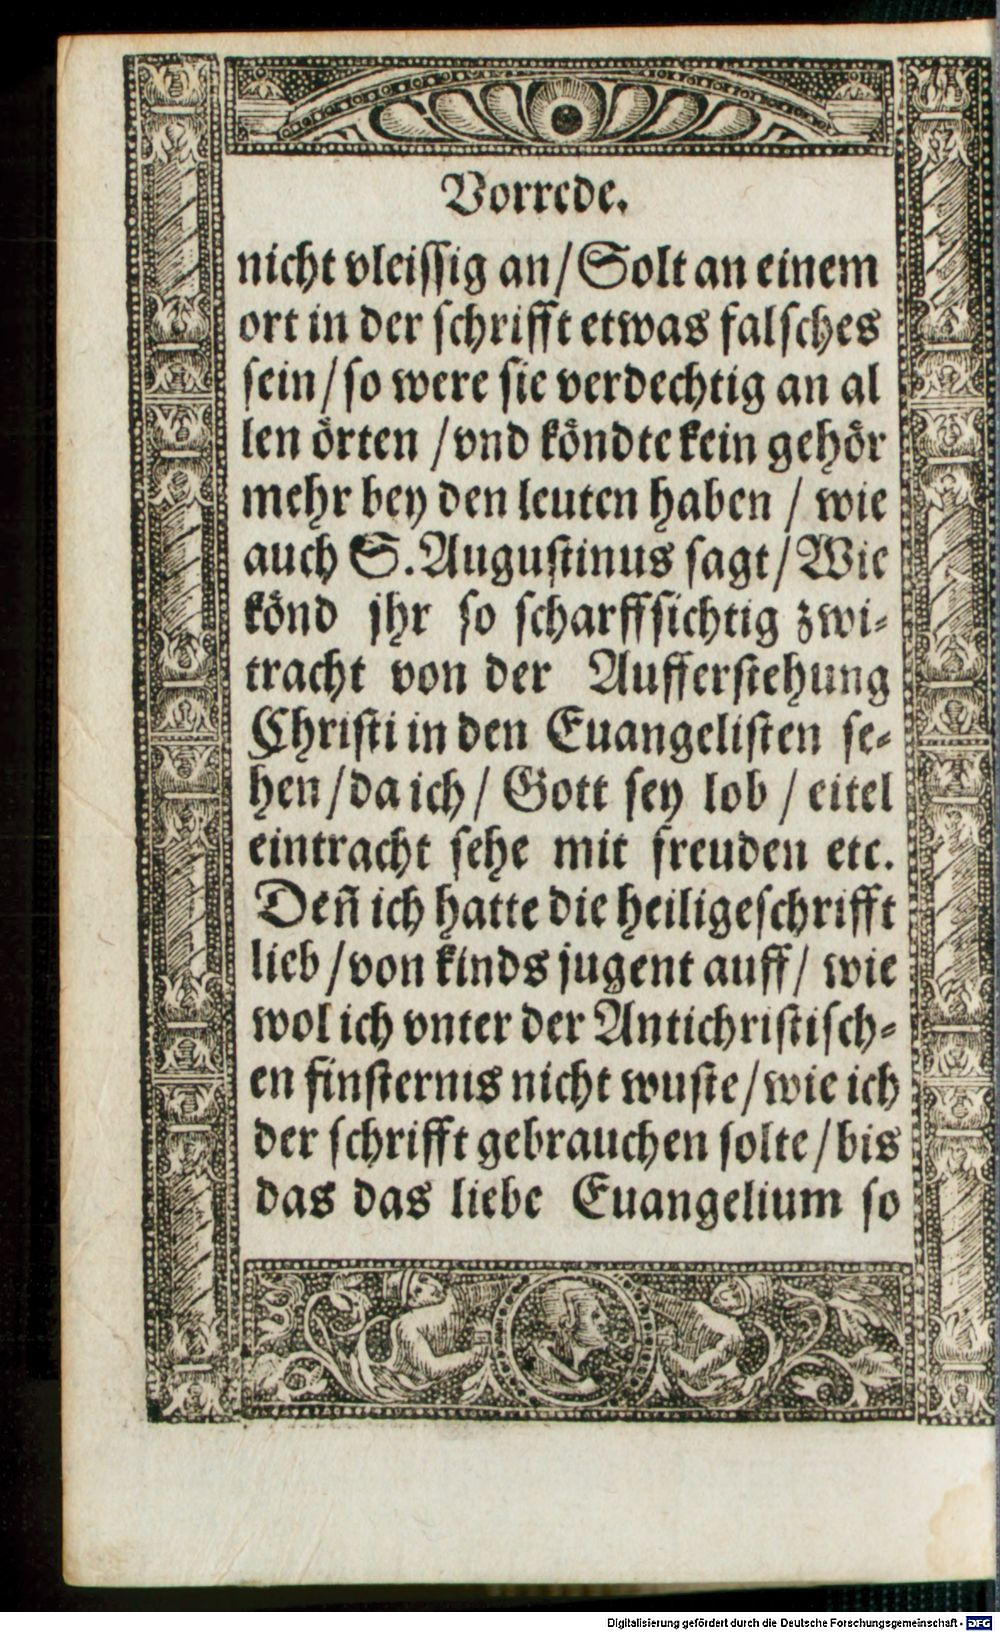 Vorrede.
nicht vleissig an/Solt an einem
ort in der schrifft etwas falsches
sein/so were sie verdechtig an al
len örten /vnd köndte kein gehör
mehr bey den leuten haben / wie
auch S.Augustinus sagt/Wie
könd jhr so scharffsichtig zwi-
tracht von der Aufferstehung
Christi in den Euangelisten se-
hen/da ich/ Gott sey lob / eitel
eintracht sehe mit freuden etc.
Den̄ ich hatte die heilige schrifft
lieb/von kinds jugent auff/ wie
wol ich vnter der Antichristisch-
en finsternis nicht wuste/wie ich
der schrifft gebrauchen solte/bis
das das liebe Euangelium so
Digitalisierung gefördert durch die Deutsche Forschungsgemeinschaft - DFG